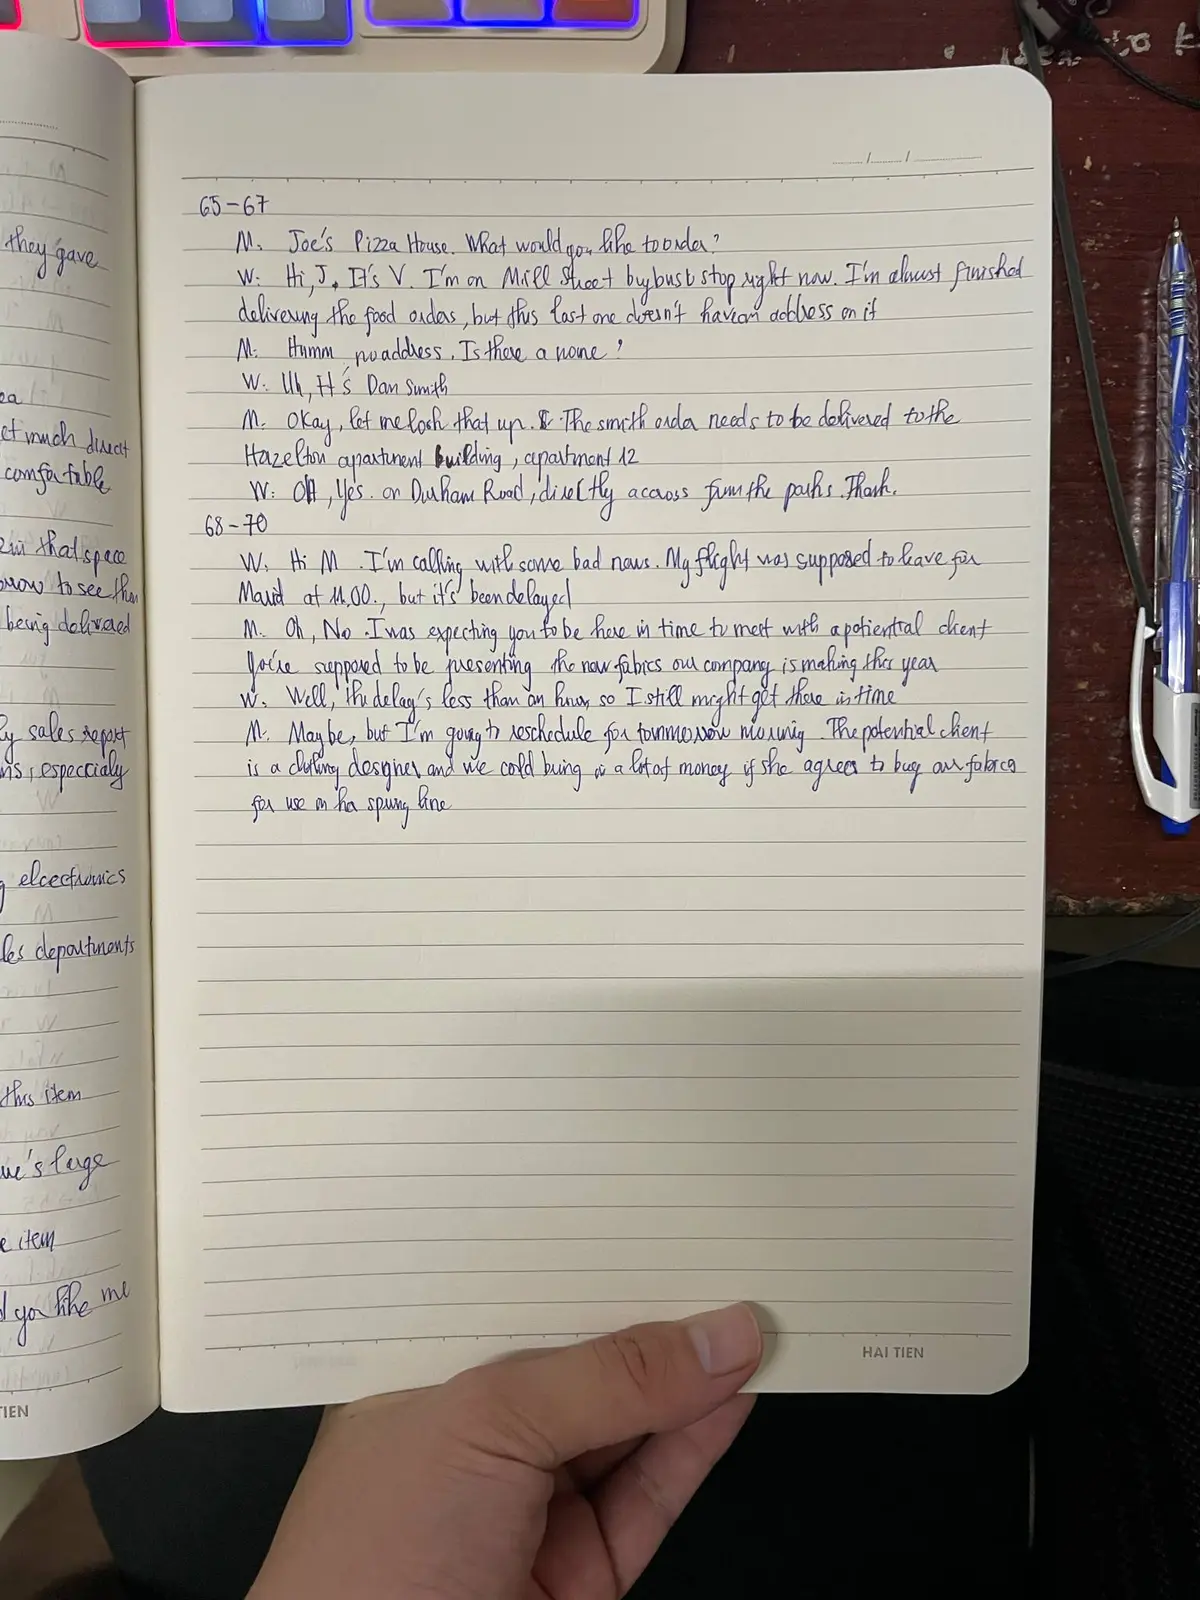 they gave
ea
ct much direct
comfortable
in that space
orrow to see them
being delivered
ly sales report
ns, especcialy
g elcectronics
les departments
this item
ue's large
e item
d you like me
TIEN
65-67
M: Joe's Pizza House. What would you like to order?
W: Hi, J. It's V. I'm on Mill Street by bus stop right now. I'm almost finished
delivering the food orders, but this last one doesn't have an address on it
M: Humm no address. Is there a name?
W: Uh, It's Dan Smith
M: Okay, let me look that up. The smith order needs to be delivered to the
Hazelton apartment building, apartment 12
W: Oh, Yes. on Durham Road, directly accross from the parks. Thank.
68-70
W: Hi M. I'm calling with some bad news. My flight was supposed to leave for
Maurid at 11.00., but it's been delayed
M: Oh, No. I was expecting you to be here in time to meet with a potiential client
You're supposed to be presenting the new fabrics our company is making this year
W: Well, the delay's less than an hour, so I still might get there in time
M: Maybe, but I'm going to reschedule for tommorow morning. The potential client
is a clothing desgner, and we cold bring in a lot of money if she agrees to buy our fabrics
for use in her spring line
HAI TIEN